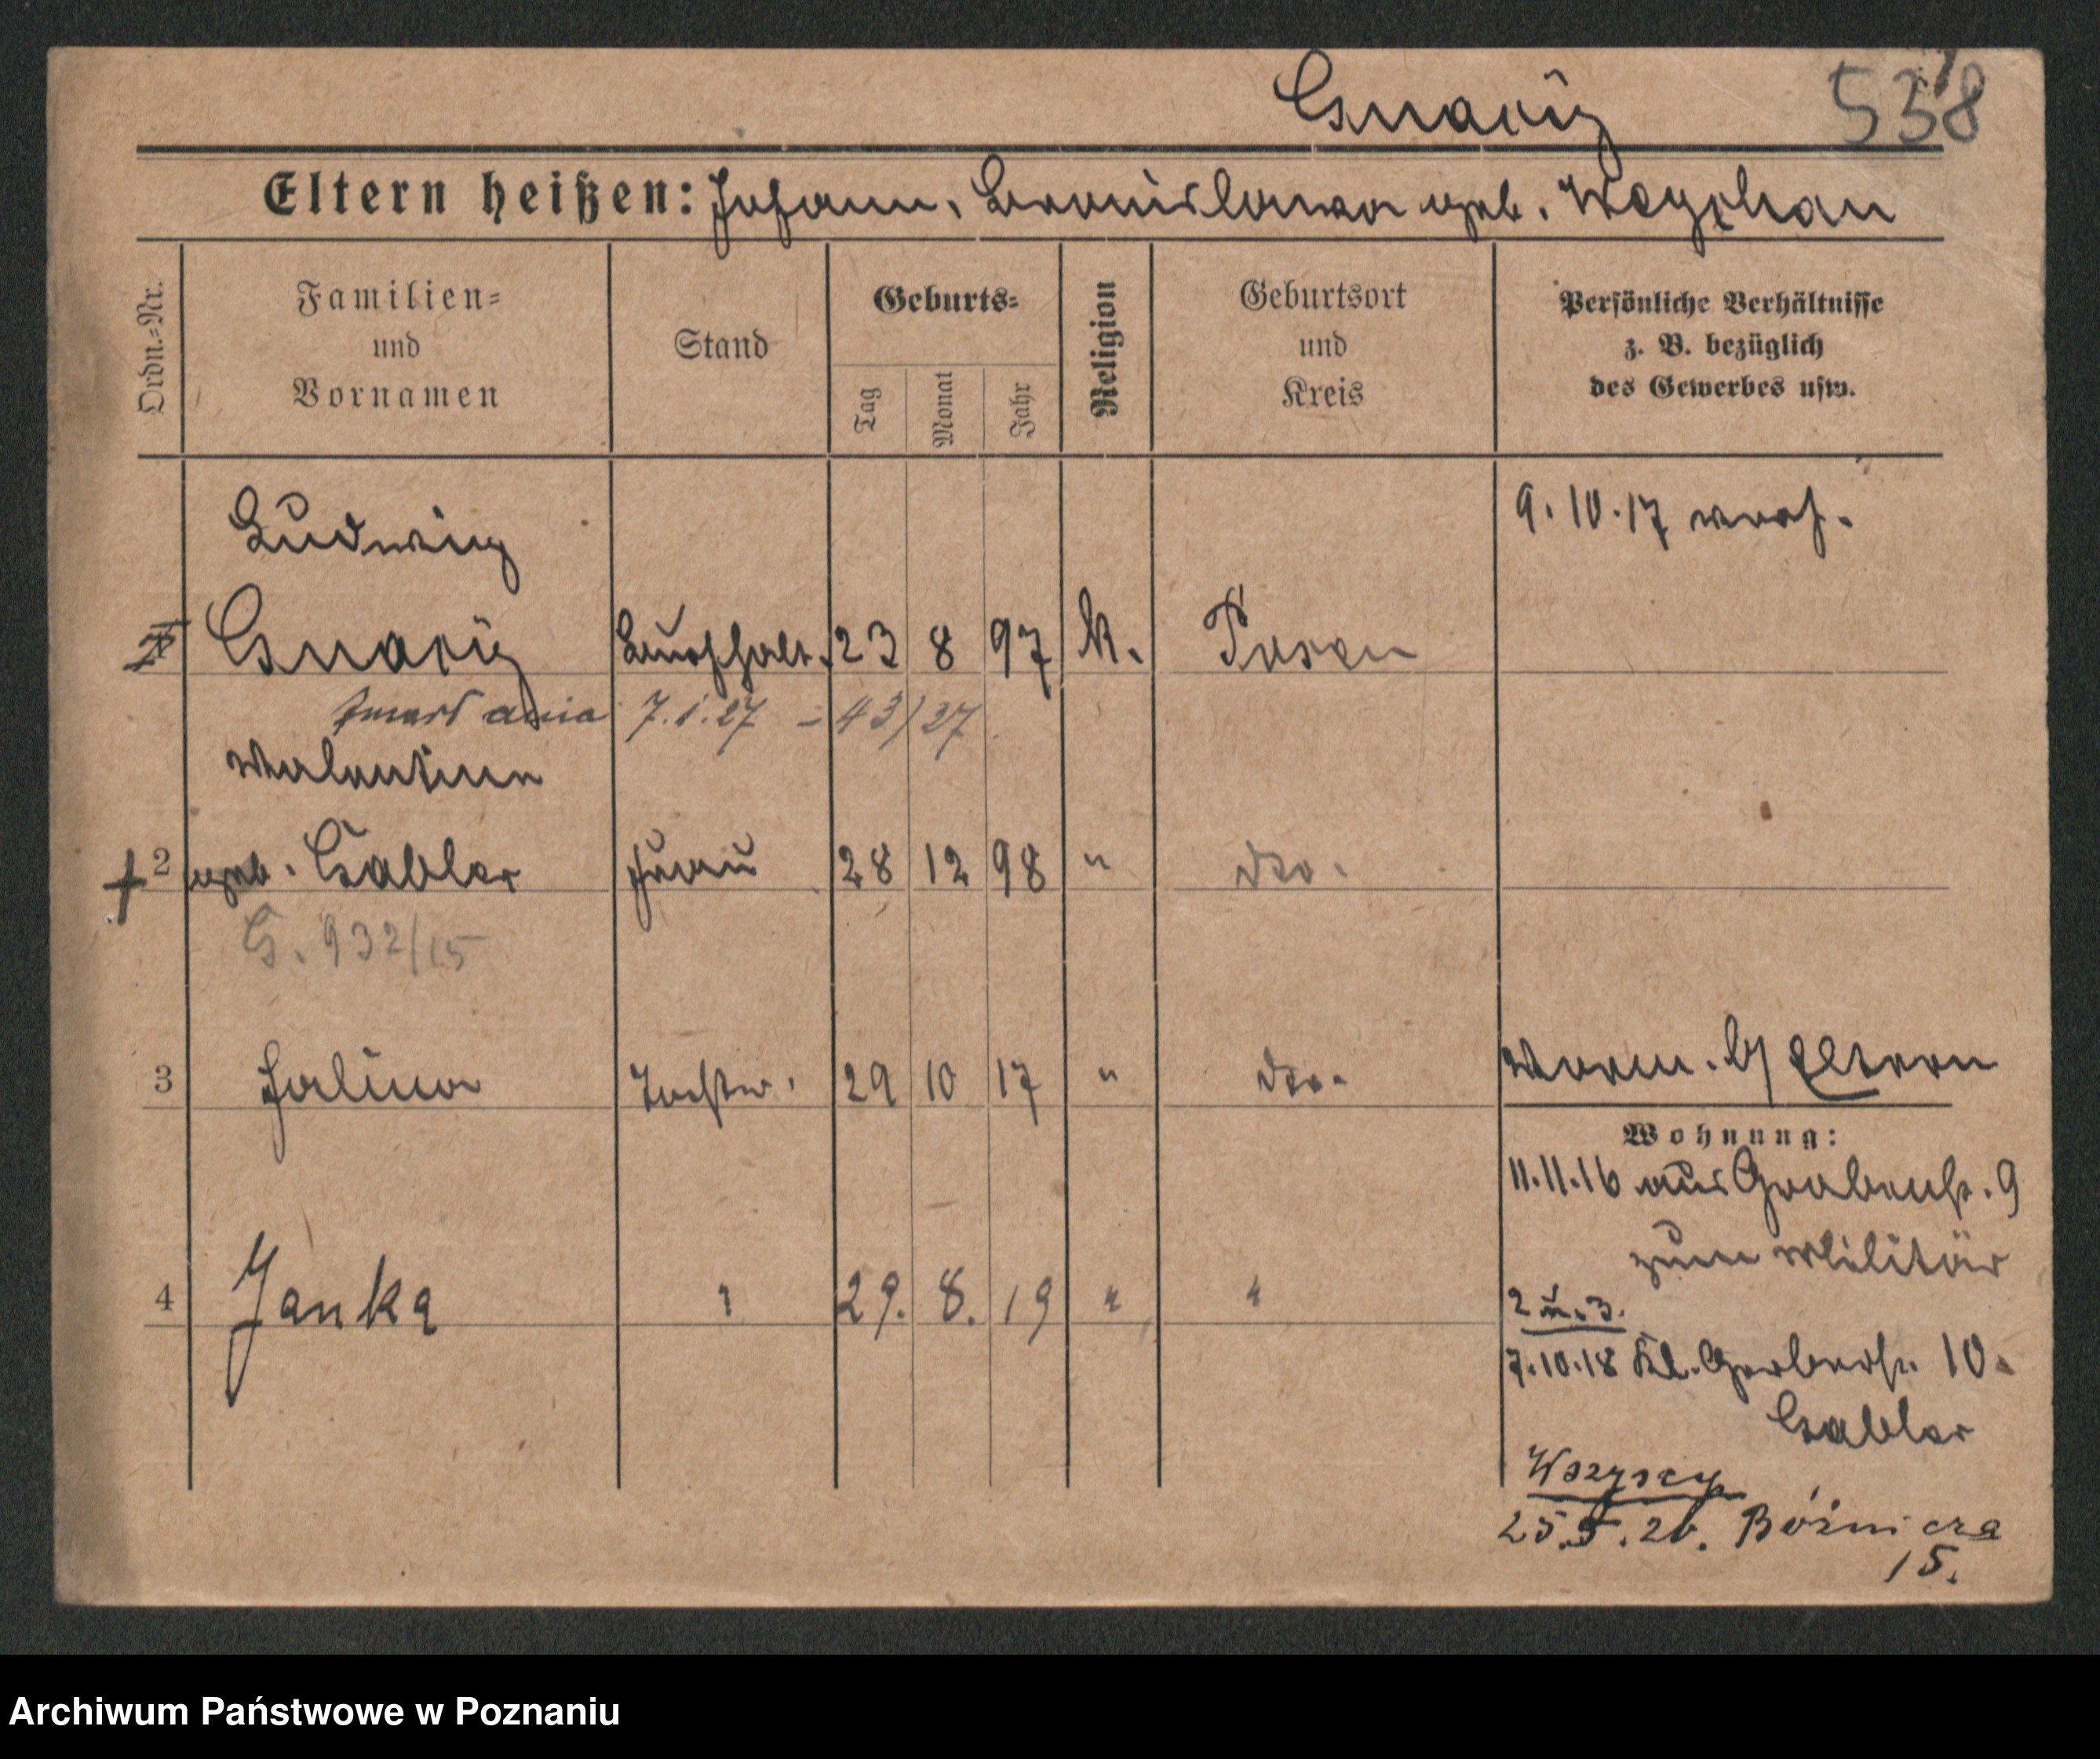 Gnacig 538
Eltern heißen: Johann, Bronislawa geb.
Ordn.-Nr.
Familien-
und
Vornamen
Stand
Geburts-
Tag
Monat
Jahr
Religion
Geburtsort
und
Kreis
Persönliche Verhältnisse
z. B. bezüglich
des Gewerbes usw.
Ludwig 9.10.17 verh.
Buchhalt. 23 8 97 k. Posen
zmarł dnia 7.1.27 - 43/27
Valentina
2 geb. Gabler Frau 28 12 98 " dto.
G. 932/15
3 Halina Tochter. 29 10 17 " dto. Eltern
Wohnung:
11.11.16 aus Grabenstr. 9
zum Militär
4 Janka " 29. 8. 19 " "
2 u. 3.
7.10.18 Kl. Gerberstr. 10.
Gabler
Wszyscy
25.5.20. Bóżnicza
15.
Archiwum Państwowe w Poznaniu